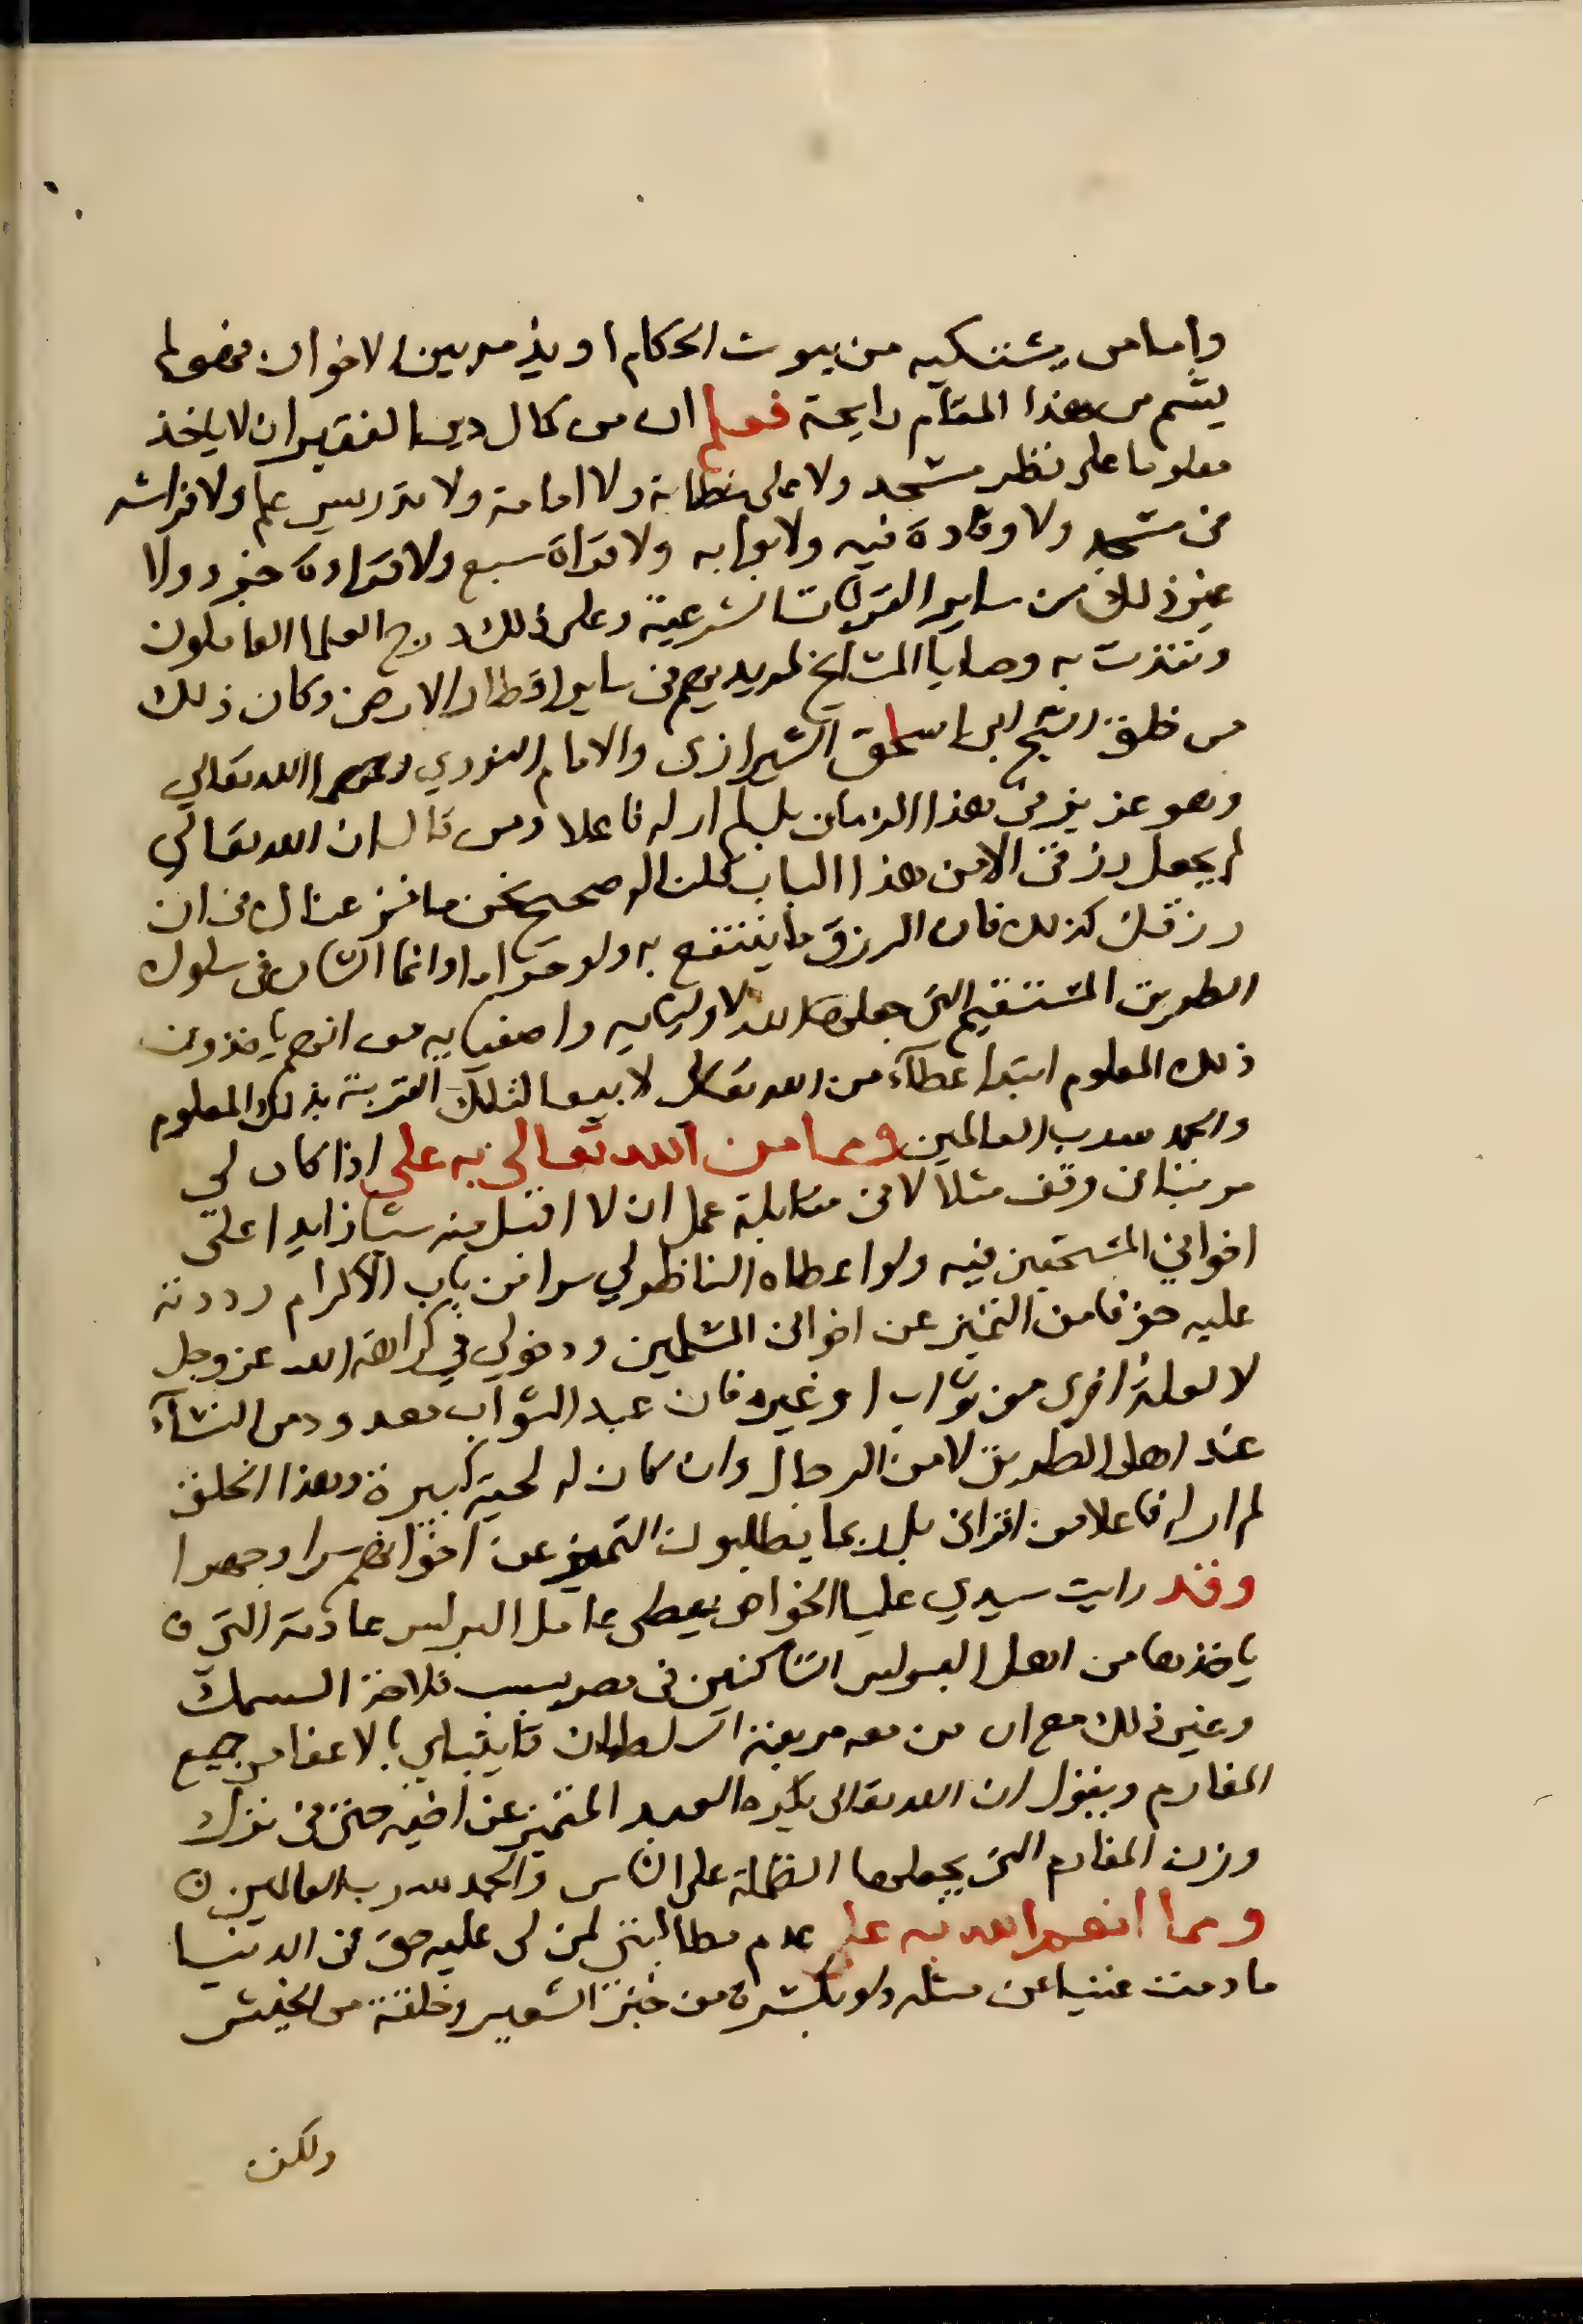 واما من يشتكيه من بيوت الحكام او يذمه بين الاخوان فهو لم
يشم من هذا المقام رايحة فعلم ان من كمال دين الفقير ان لا ياخذ
معلوما على نظر مسجد ولا على خطابة ولا امامة ولا تدريس علم ولا فراشه
في مسجد ولا وقادة فيه ولا بوابه ولا قراة سبع ولا قراءة جزء ولا
غير ذلك من ساير القربات الشرعية وعلى ذلك درج العلما العاملون
ونفذت به وصايا المشايخ لمريديهم في ساير اقطار الارض وكان ذلك
من خلق الشيخ ابي اسحق الشيرازى والامام النووي رحمهما الله تعالى
وهو عزيز في هذا الزمان بل لم ار له فاعلا ومن قال ان الله تعالى
لم يجعل رزقى الا من هذا الباب قلنا له صحيح نحن ما ننازعك في ان
رزقك كذلك فان الرزق ما ينتفع به ولو حراما وانما الشان في سلوك
الطريق المستقيم التي جعلها الله لاوليايه واصفيايه من انهم ياخذون
ذلك المعلوم ابتداء عطاء من الله تعالى لا بيعا لتلك القربة بذلك المعلوم
والحمد لله رب العالمين ومما من الله تعالى به على اذا كان لي
مرتبا في وقف مثلا لا في مقابلة عمل ان لا اقبل منه شيا زايدا على
اخواني المستحقين فيه ولو اعطاه الناظر لي سرا من باب الاكرام رددته
عليه خوفا من التميز عن اخواني المسلمين ودخولي في كراهة الله عز وجل
لا لعلة اخرى من ثواب او غيره فان عبد الثواب معدود من النساء
عند اهل الطريق لا من الرجال وان كان له لحية كبيرة وهذا الخلق
لم ار له فاعلا من اقراني بل ربما يطلبون التميز عن اخوانهم سرا وجهرا
وقد رايت سيدي عليا الخواص يعطى عامل البرلس عادته التي
ياخذها من اهل البرلس الساكنين في مصر بسبب فلاحة السمك
وغير ذلك مع ان من معه مربعة السلطان قايتباي بالاعفا من جميع
المغارم ويقول ان الله تعالى يكره العبد المتميز عن اخيه حتى في نزك
وزن المغارم التي يجعلها الظلمة على الناس والحمد لله رب العالمين
ومما انعم الله به على عدم مطالبتى لمن لى عليه حق في الدنيا
ما دمت غنيا عن مثله ولو بكسرة من خبز الشعير وخلقة من الخيش
ولكن